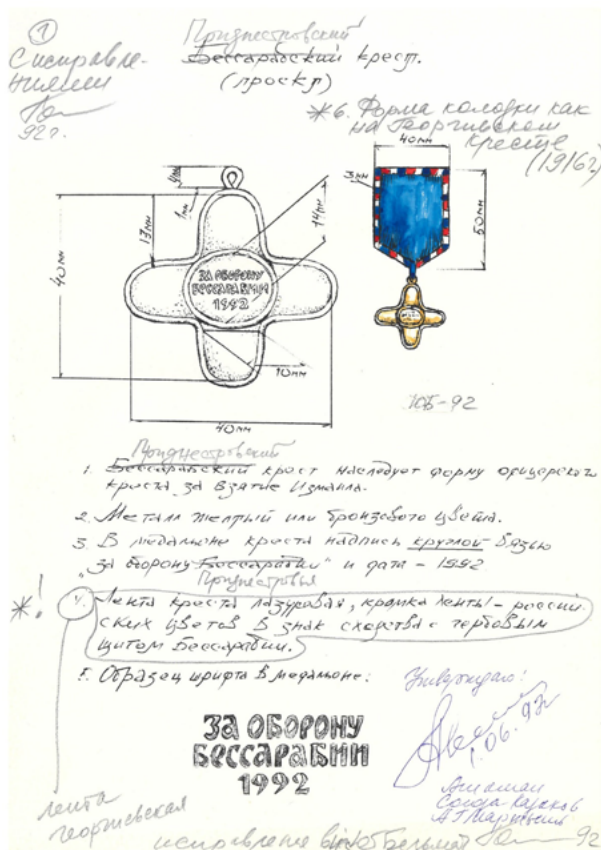 1
С исправле-
ниями
92 г.
Приднестровский
Бессарабский крест.
(проект)
*6. Форма колодки как
на Георгиевском
кресте
(1916г)
40мм
3мм
50мм
4мм
1мм
13мм
14мм
40мм
ЗА ОБОРОНУ
БЕССАРАБИИ
1992
10мм
40мм
ЮБ-92
Приднестровский
1. Бессарабский крест наследует форму офицерского
креста за взятие Измаила.
2. Металл желтый или бронзового цвета.
3. В медальоне креста надпись круглой вязью
"За оборону Бессарабии" и дата - 1992
Приднестровья
*! 4. Лента креста лазуровая, кромка ленты - россий.
ских цветов в знак сходства с гербовым
щитом Бессарабии.
5. Образец шрифта в медальоне:
Утверждаю:
1.06.92
ЗА ОБОРОНУ
БЕССАРАБИИ
1992
Атаман
Союза казаков
А Г Мартынов
лента
георгиевская
исправление
92